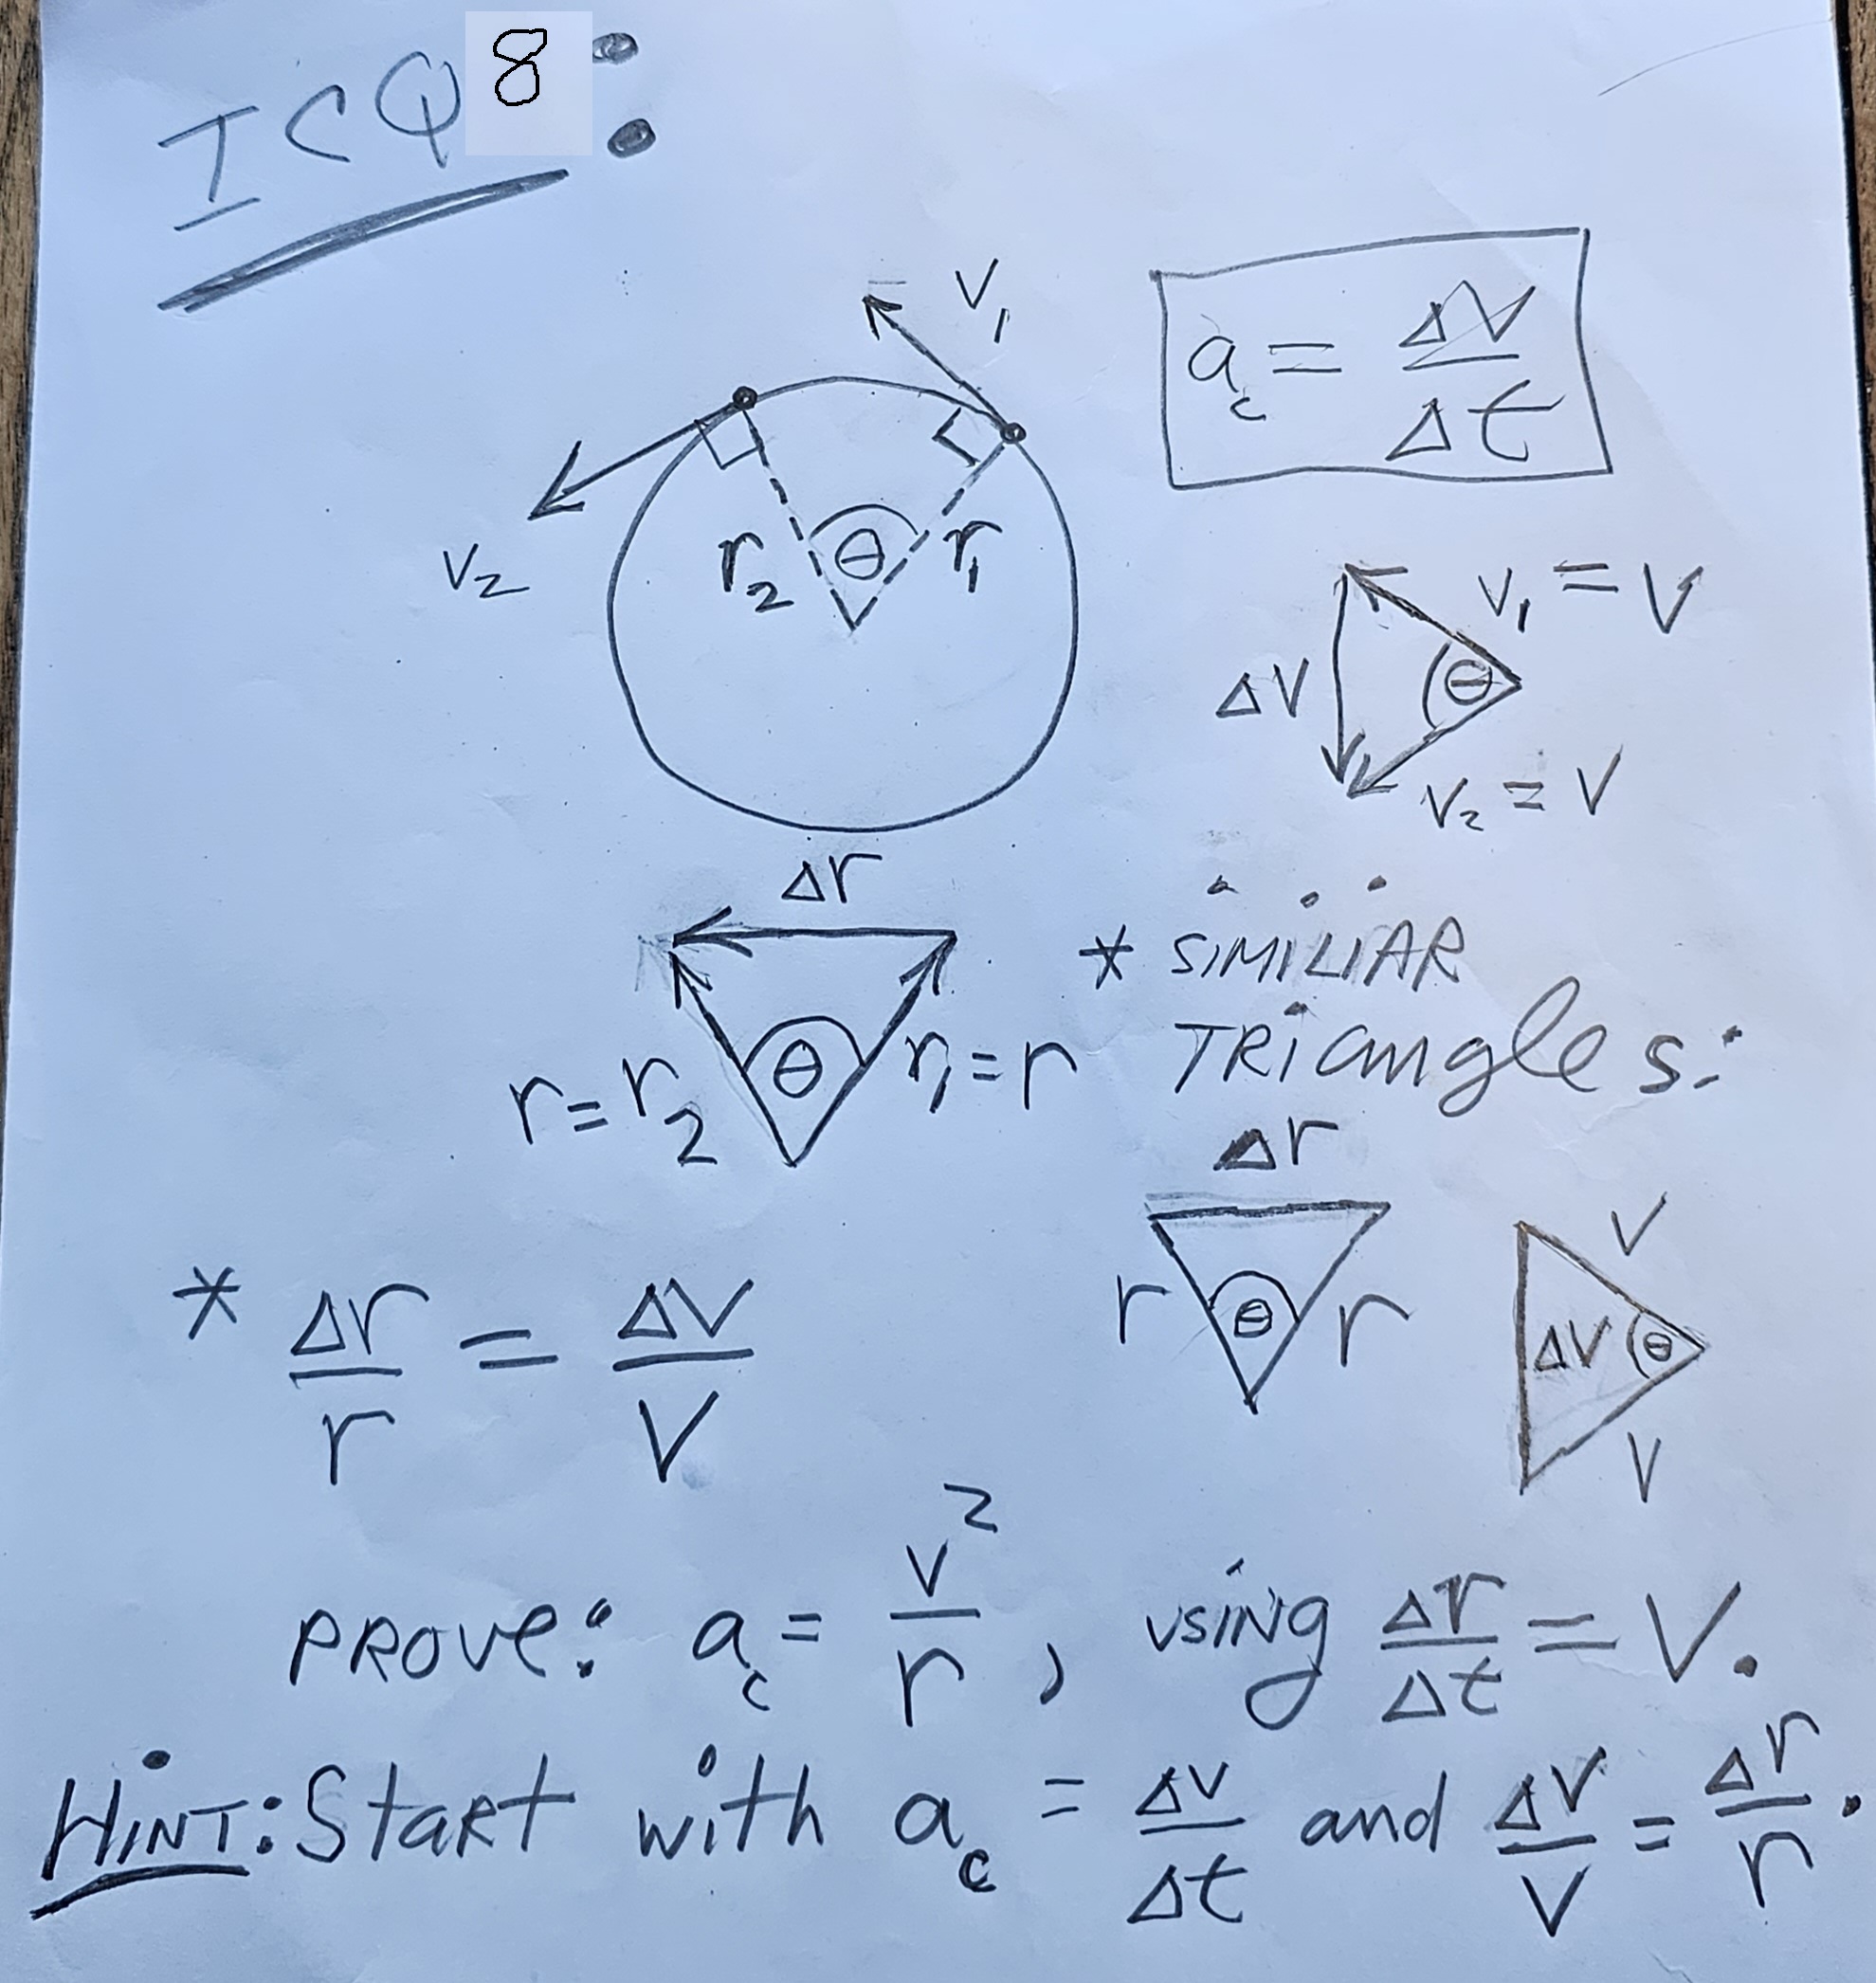 ICQ 8:
v₁
a_c = Δv/Δt
v₂
r₂ θ r₁
v₁ = v
Δv θ
v₂ = v
Δr
r = r₂ θ r₁ = r
* SIMILIAR
TRiangles:
Δr
r θ r
v
Δv θ
v
* Δr/r = Δv/v
PROVE: a_c = v²/r, using Δr/Δt = V.
HINT: Start with a_c = Δv/Δt and Δv/v = Δr/r.